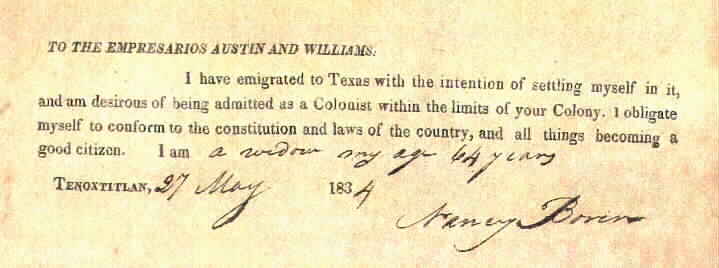 TO THE EMPRESARIOS AUSTIN AND WILLIAMS:
I have emigrated to Texas with the intention of settling myself in it,
and am desirous of being admitted as a Colonist within the limits of your Colony. I obligate
myself to conform to the constitution and laws of the country, and all things becoming a
good citizen. I am a widow my age 64 years
TENOXTITLAN, 27 May 1834
Nancy Boren